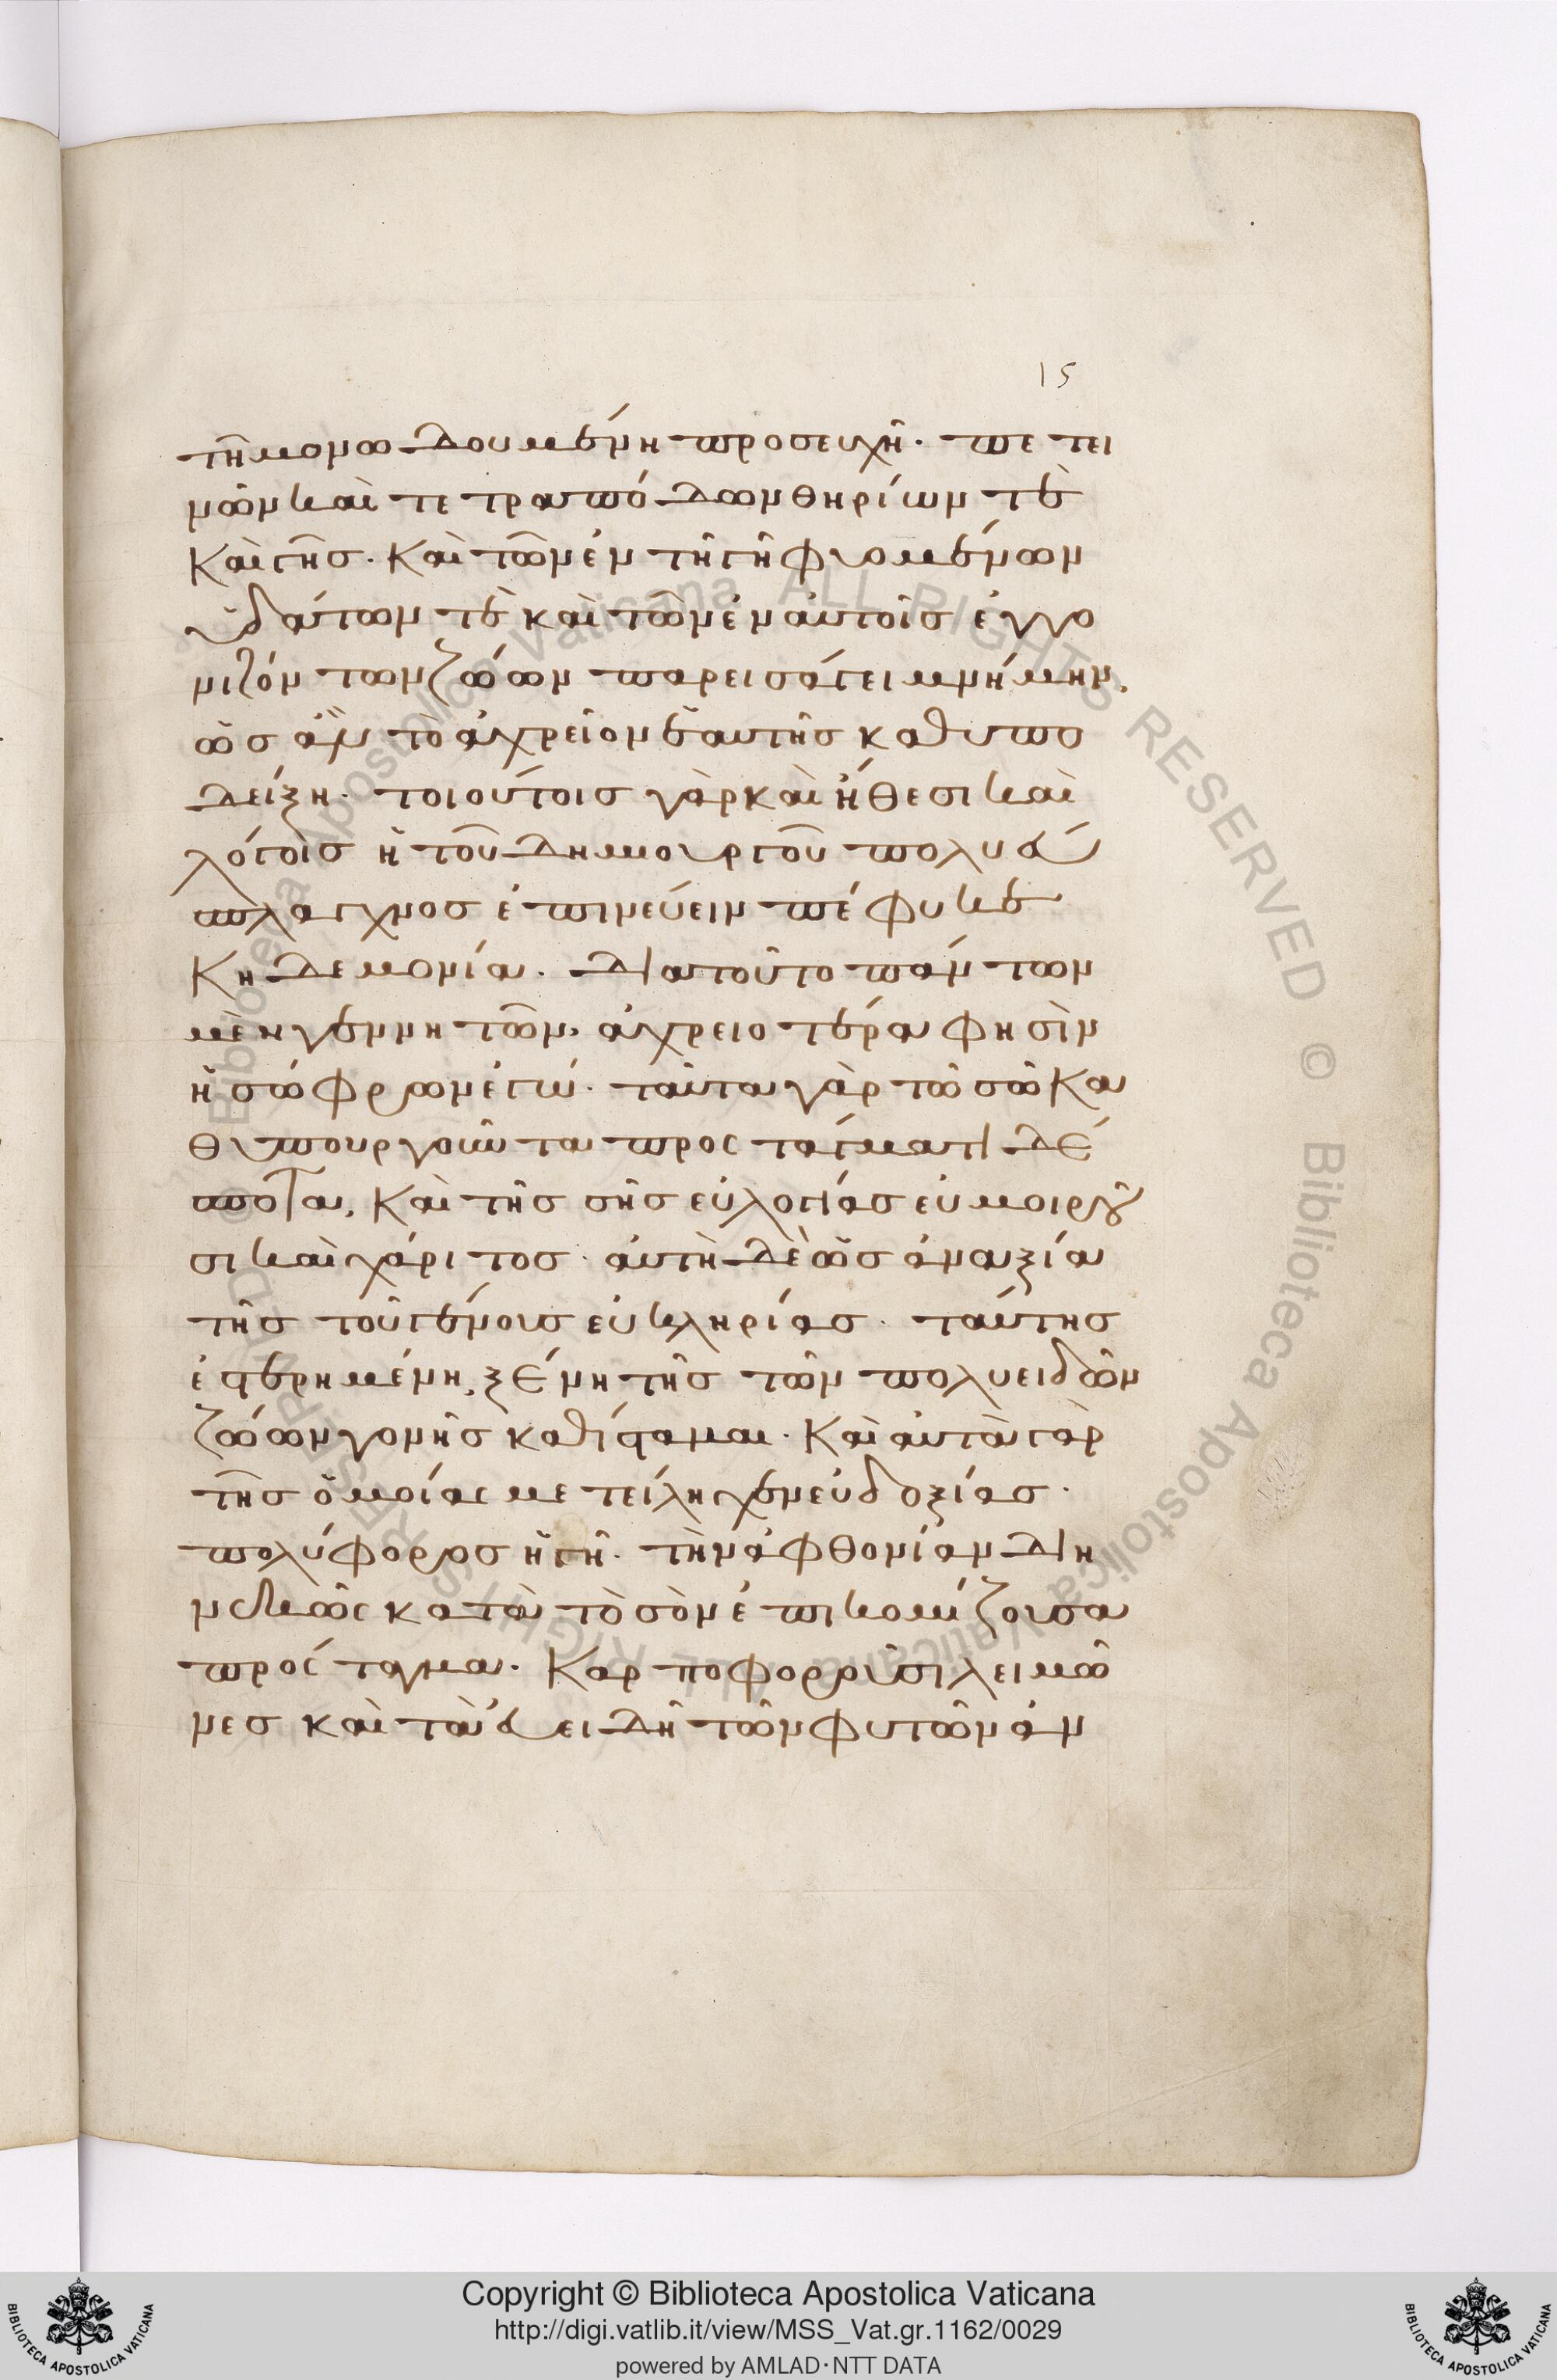 15
τῆ μονωδουμένη προσευχῆ. πετει
νῶν καὶ τετραπόδων θηρίων τὲ
καὶ γῆς. καὶ τῶν ἐν τῆ γῆ φυομένων
ὑδάτων τὲ καὶ τῶν ἐν αὐτοῖς ἐννο
μιζόντων ζώων παρεισάγει μνήμην,
ὡς ἂν τὸ ἀχρεῖον ἑαυτῆς καθυπο
δείξη. τοιούτοις γὰρ καὶ ἤθεσι καὶ
λόγοις ἡ τοῦ δημιουργοῦ πολυεύ
σπλαγχνος ἐπινεύειν πέφυκε
κηδεμονία. διατοῦτο πάντων
μὲν γεννητῶν, ἀχρειοτέρα φησὶν
ἡ σώφρων ἐγώ. ταῦτα γὰρ τῶ σῶ κα
θυπουργοῦντα προστάγματι δέ
σποτα, καὶ τῆς σῆς εὐλογίας εὐμοιροῦ
σι καὶ χάριτος. αὐτὴ δὲ ὡς ἀναξία
τῆς τοῦ γένους εὐκληρίας. ταύτης
ἐστερημένη, ξένη τῆς τῶν πολυειδῶν
ζώων γονῆς καθίσταμαι. καὶ αὐτὰ γὰρ
τῆς ὁμοίας μετείληχεν εὐδοξίας.
πολύφορος ἡ γῆ. τὴν ἀφθονίαν διη
νεκῶς κατὰ τὸ σὸν ἐπικομίζουσα
πρόσταγμα. καρποφοροῦσι λειμῶ
νες καὶ τὰ ἀειδῆ τῶν φυτῶν ἀν
Copyright © Biblioteca Apostolica Vaticana
http://digi.vatlib.it/view/MSS_Vat.gr.1162/0029
powered by AMLAD·NTT DATA